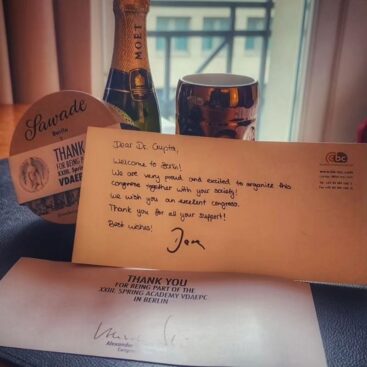 MOËT
Sawade
Berlin
THANK
FOR BEING PAR
XXIII. Sprin
VDAEP
cbc
Dear Dr. Gupta,
Welcome to Berlin!
We are very proud and excited to organize this
congress together with your society!
We wish you an excellent congress.
Thank you for all your support!
Best wishes!
THANK YOU
FOR BEING PART OF THE
XXIII. SPRING ACADEMY VDAEPC
IN BERLIN
Alexander